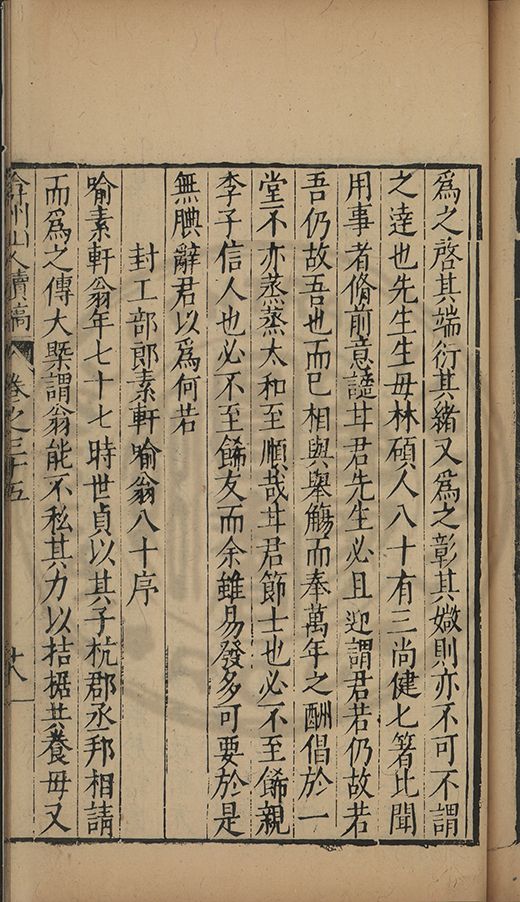 爲之啓其端衍其緒又爲之彰其媺則亦不可不謂
之逹也先生生母林碩人八十有三尚健匕箸比聞
用事者脩前意謔甘君先生必且迎謂君若仍故若
吾仍故吾也而已相與舉觴而奉萬年之酬倡於一
堂不亦蒸蒸太和至順哉甘君節士也必不至餙親
李子信人也必不至餙友而余雖易發多可要於是
無腆辭君以爲何若
封工部郎素軒喻翁八十序
喻素軒翁年七十七時世貞以其子杭郡丞邦相請
而爲之傳大槩謂翁能不私其力以拮据共養母又
弇州山人續稿 卷之三十五 十八